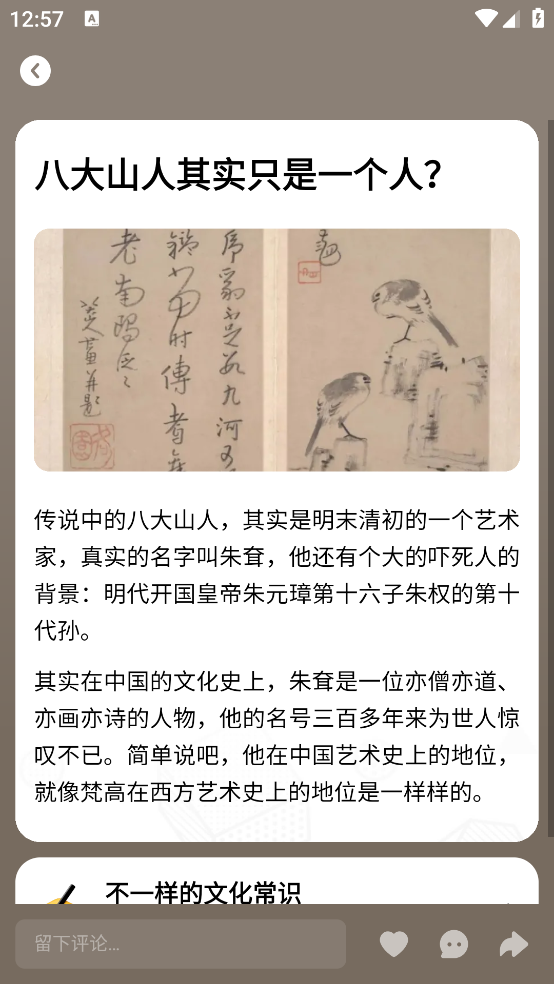 12:57
A
八大山人其实只是一个人？
传说中的八大山人，其实是明末清初的一个艺术
家，真实的名字叫朱耷，他还有个大的吓死人的
背景：明代开国皇帝朱元璋第十六子朱权的第十
代孙。
其实在中国的文化史上，朱耷是一位亦僧亦道、
亦画亦诗的人物，他的名号三百多年来为世人惊
叹不已。简单说吧，他在中国艺术史上的地位，
就像梵高在西方艺术史上的地位是一样样的。
不一样的文化常识
留下评论...